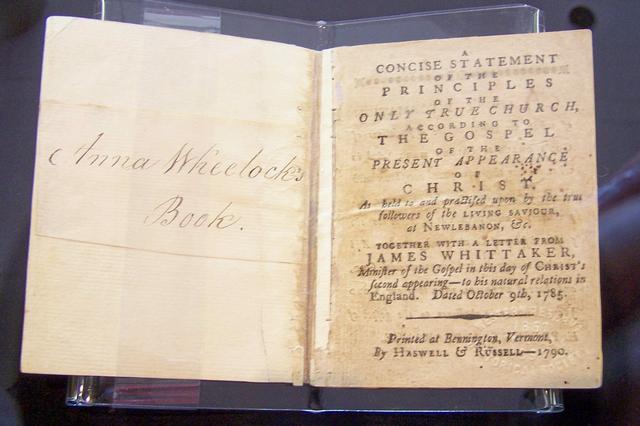 Anna Wheelock's
Book.
A
CONCISE STATEMENT
OF THE
PRINCIPLES
OF THE
ONLY TRUE CHURCH,
ACCORDING TO
THE GOSPEL
OF THE
PRESENT APPEARANCE
OF
CHRIST.
As held to and practiſed upon by the true
followers of the LIVING SAVIOUR,
at NEWLEBANON, &c.
TOGETHER WITH A LETTER FROM
JAMES WHITTAKER,
Miniſter of the Goſpel in this day of CHRIST's
ſecond appearing—to his natural relations in
England. Dated October 9th, 1785.
Printed at Bennington, Vermont,
By HASWELL & RUSSELL—1790.